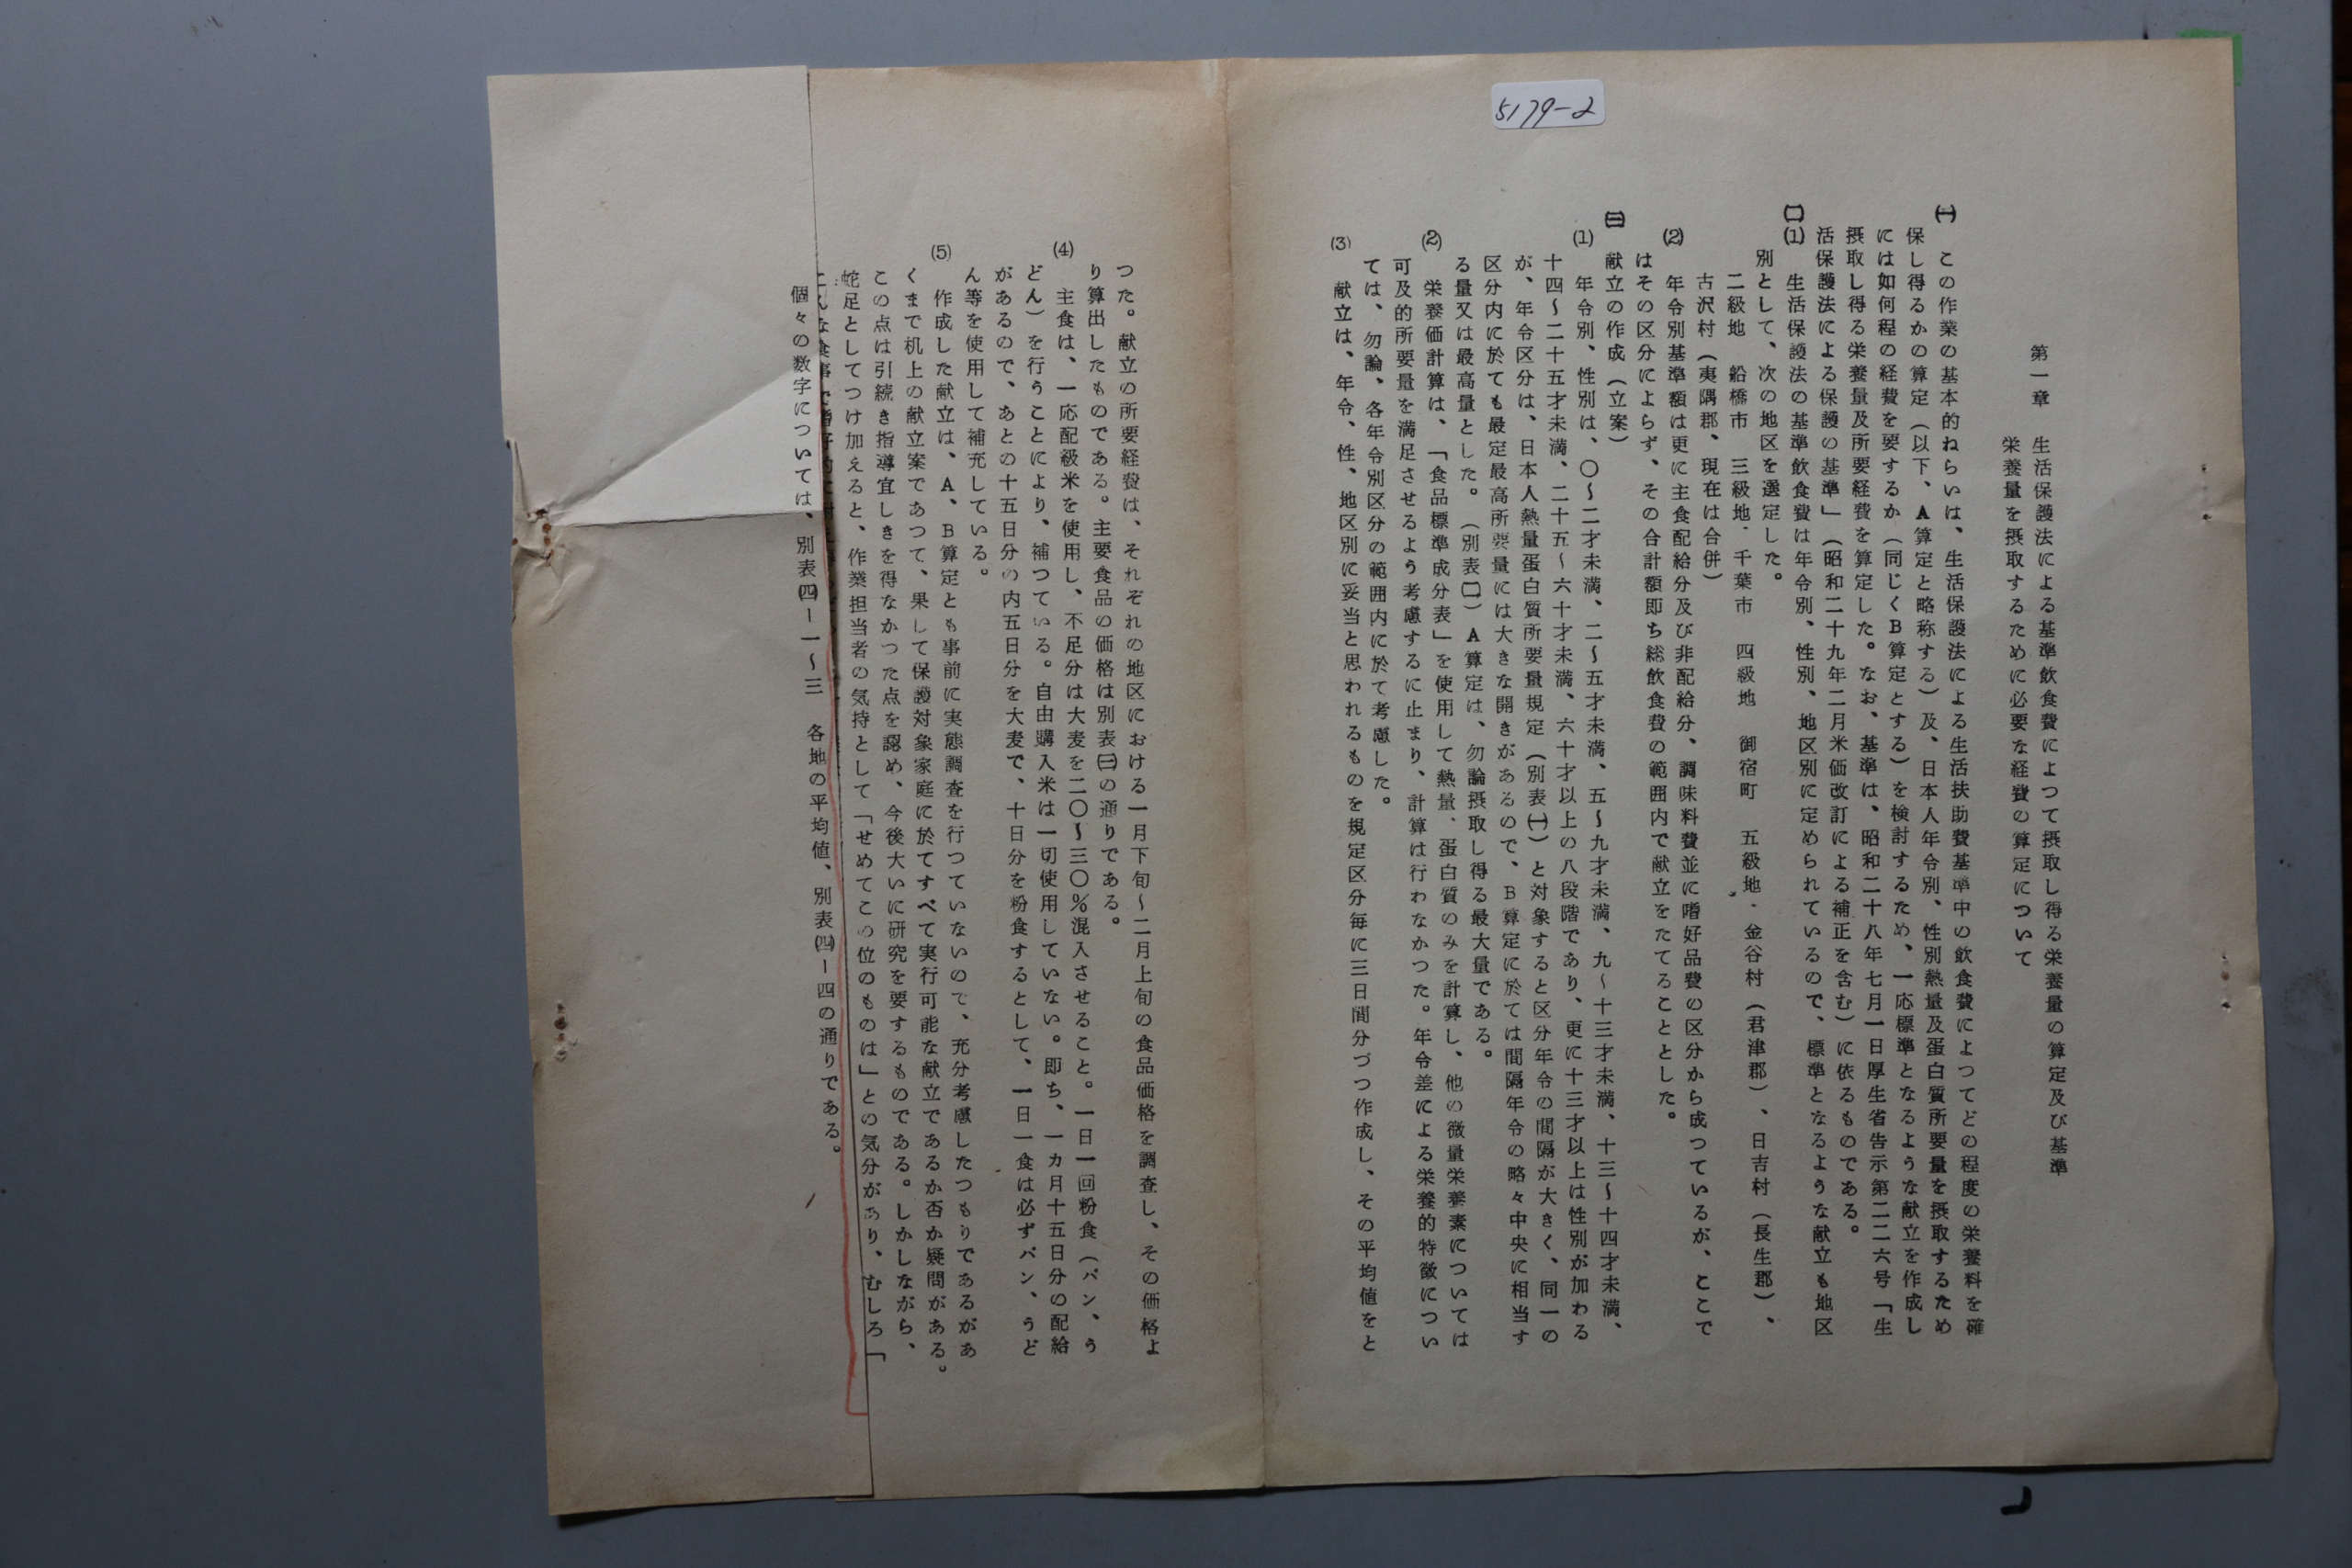 5179-2
第一章 生活保護法による基準飲食費によつて摂取し得る栄養量の算定及び基準
栄養量を摂取するために必要な経費の算定について
㈠ この作業の基本的ねらいは、生活保護法による生活扶助費基準中の飲食費によつてどの程度の栄養料を確
保し得るかの算定（以下、A算定と略称する）及、日本人年令別、性別熱量及蛋白質所要量を摂取するため
には如何程の経費を要するか（同じくB算定とする）を検討するため、一応標準となるような献立を作成し
摂取し得る栄養量及所要経費を算定した。なお、基準は、昭和二十八年七月一日厚生省告示第二二六号「生
活保護法による保護の基準」（昭和二十九年二月米価改訂による補正を含む）に依るものである。
㈡(1) 生活保護法の基準飲食費は年令別、性別、地区別に定められているので、標準となるような献立も地区
別として、次の地区を選定した。
二級地 船橋市 三級地・千葉市 四級地 御宿町 五級地・金谷村（君津郡）、日吉村（長生郡）、
古沢村（夷隅郡、現在は合併）
(2) 年令別基準額は更に主食配給分及び非配給分、調味料費並に嗜好品費の区分から成つているが、ここで
はその区分によらず、その合計額即ち総飲食費の範囲内で献立をたてることとした。
㈢ 献立の作成（立案）
(1) 年令別、性別は、〇～二才未満、二～五才未満、五～九才未満、九～十三才未満、十三～十四才未満、
十四～二十五才未満、二十五～六十才未満、六十才以上の八段階であり、更に十三才以上は性別が加わる
が、年令区分は、日本人熱量蛋白質所要量規定（別表㈠）と対象すると区分年令の間隔が大きく、同一の
区分内に於ても最定最高所要量には大きな開きがあるので、B算定に於ては間隔年令の略々中央に相当す
る量又は最高量とした。（別表㈡）A算定は、勿論摂取し得る最大量である。
(2) 栄養価計算は、「食品標準成分表」を使用して熱量、蛋白質のみを計算し、他の微量栄養素については
可及的所要量を満足させるよう考慮するに止まり、計算は行わなかつた。年令差による栄養的特徴につい
ては、勿論、各年令別区分の範囲内に於て考慮した。
(3) 献立は、年令、性、地区別に妥当と思われるものを規定区分毎に三日間分づつ作成し、その平均値をと
つた。献立の所要経費は、それぞれの地区における一月下旬～二月上旬の食品価格を調査し、その価格よ
り算出したものである。主要食品の価格は別表㈢の通りである。
(4) 主食は、一応配級米を使用し、不足分は大麦を二〇～三〇％混入させること。一日一回粉食（パン、う
どん）を行うことにより、補つている。自由購入米は一切使用していない。即ち、一カ月十五日分の配給
があるので、あとの十五日分の内五日分を大麦で、十日分を粉食するとして、一日一食は必ずパン、うど
ん等を使用して補充している。
(5) 作成した献立は、A、B算定とも事前に実態調査を行つていないので、充分考慮したつもりであるがあ
くまで机上の献立案であつて、果して保護対象家庭に於てすべて実行可能な献立であるか否か疑問がある。
この点は引続き指導宜しきを得なかつた点を認め、今後大いに研究を要するものである。しかしながら、
蛇足としてつけ加えると、作業担当者の気持として「せめてこの位のものは」との気分があり、むしろ「
個々の数字については、別表㈣ー一～三 各地の平均値、別表㈣ー四の通りである。